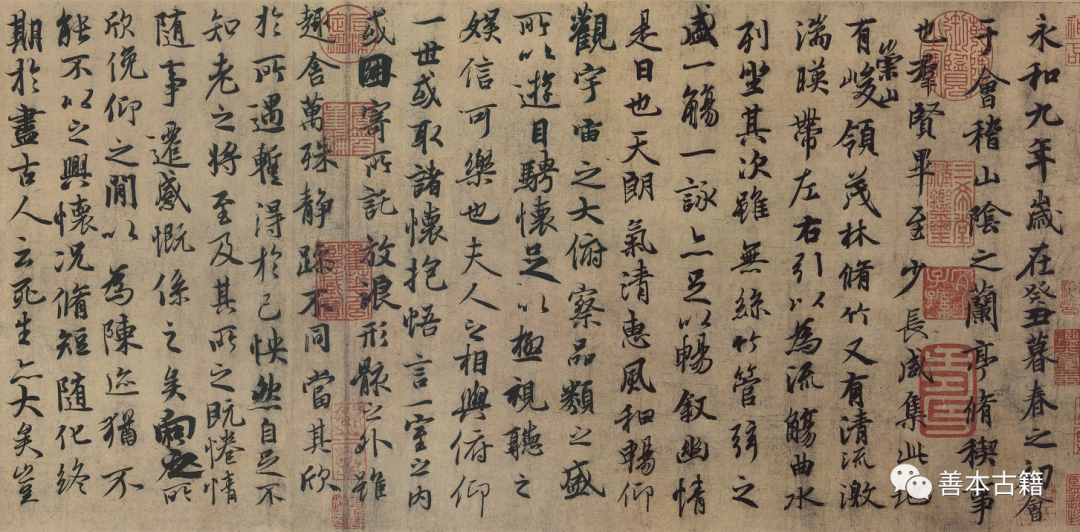 永和九年歲在癸丑暮春之初會
于會稽山陰之蘭亭脩稧事
也羣賢畢至少長咸集此地
有崇山峻領茂林脩竹又有清流激
湍暎帶左右引以為流觴曲水
列坐其次雖無絲竹管弦之
盛一觴一詠亦足以暢敘幽情
是日也天朗氣清惠風和暢仰
觀宇宙之大俯察品類之盛
所以遊目騁懷足以極視聽之
娛信可樂也夫人之相與俯仰
一世或取諸懷抱悟言一室之內
或因寄所託放浪形骸之外雖
趣舍萬殊靜躁不同當其欣
於所遇蹔得於己怏然自足不
知老之將至及其所之既惓情
隨事遷感慨係之矣向之所
欣俛仰之閒以為陳迹猶不
能不以之興懷況脩短隨化終
期於盡古人云死生亦大矣豈
善本古籍